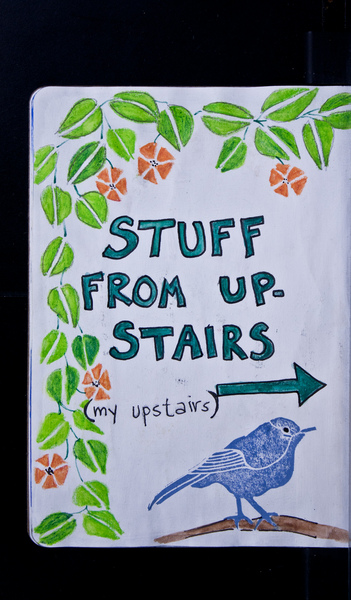 STUFF
FROM UP-
STAIRS
(my upstairs)